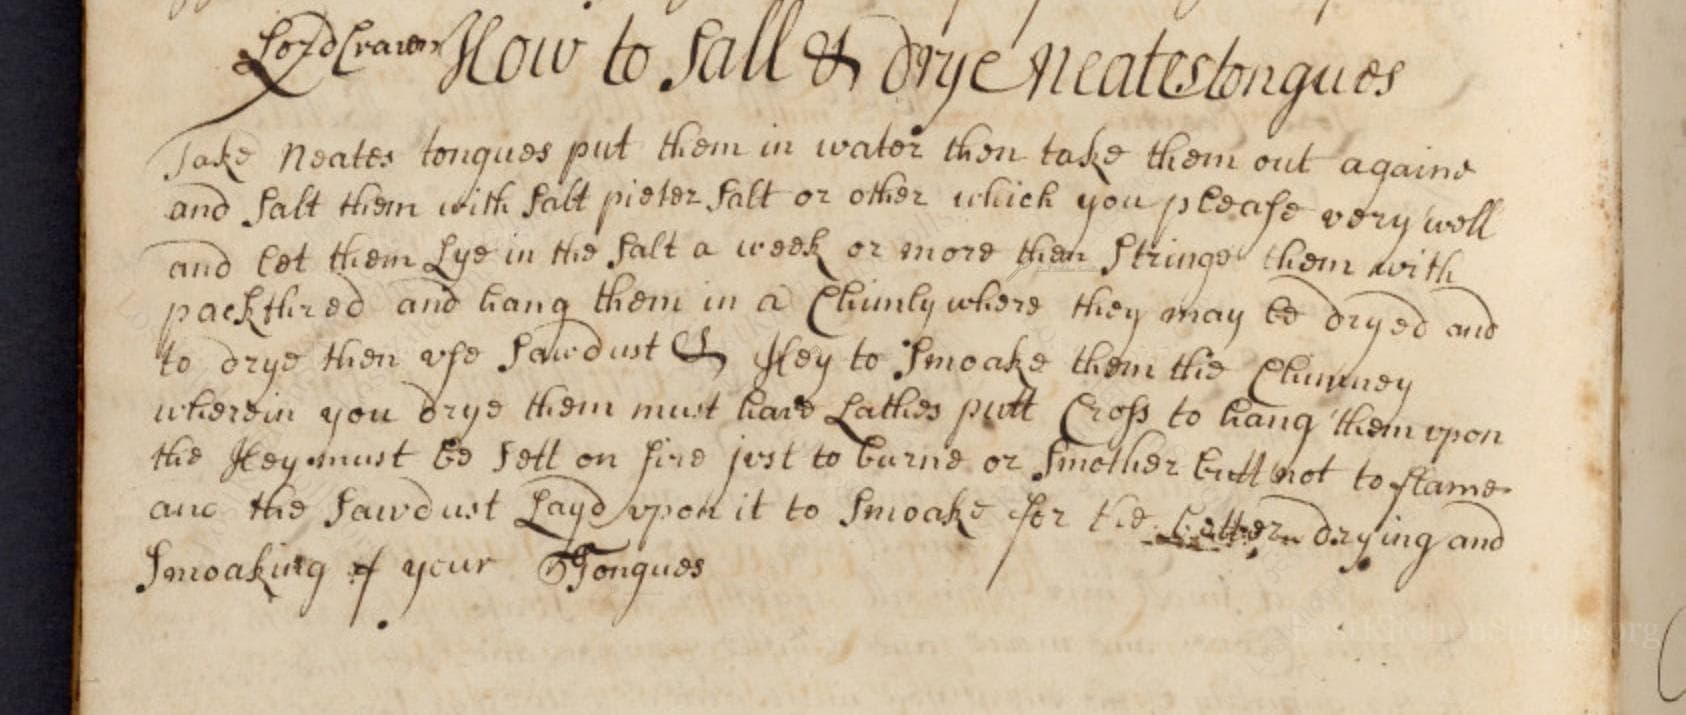 Lord Craven How to Sall & drye Neates tongues
Take Neates tongues put them in water then take them out againe
and Salt them with salt pieter salt or other which you please very well
and let them Lye in the salt a week or more then stringe them with
packthred and hang them in a Chimly where they may be dryed and
to drye then vse Sawdust & Hey to Smoake them the Chimney
wherein you drye them must have Lathes putt Cross to hang them vpon
the Hey must be sett on fire jvst to burne or smother butt not to flame
and the Sawdust Layd vpon it to Smoake for the better drying and
Smoaking of your Tongues
LostKitchenScrolls.org